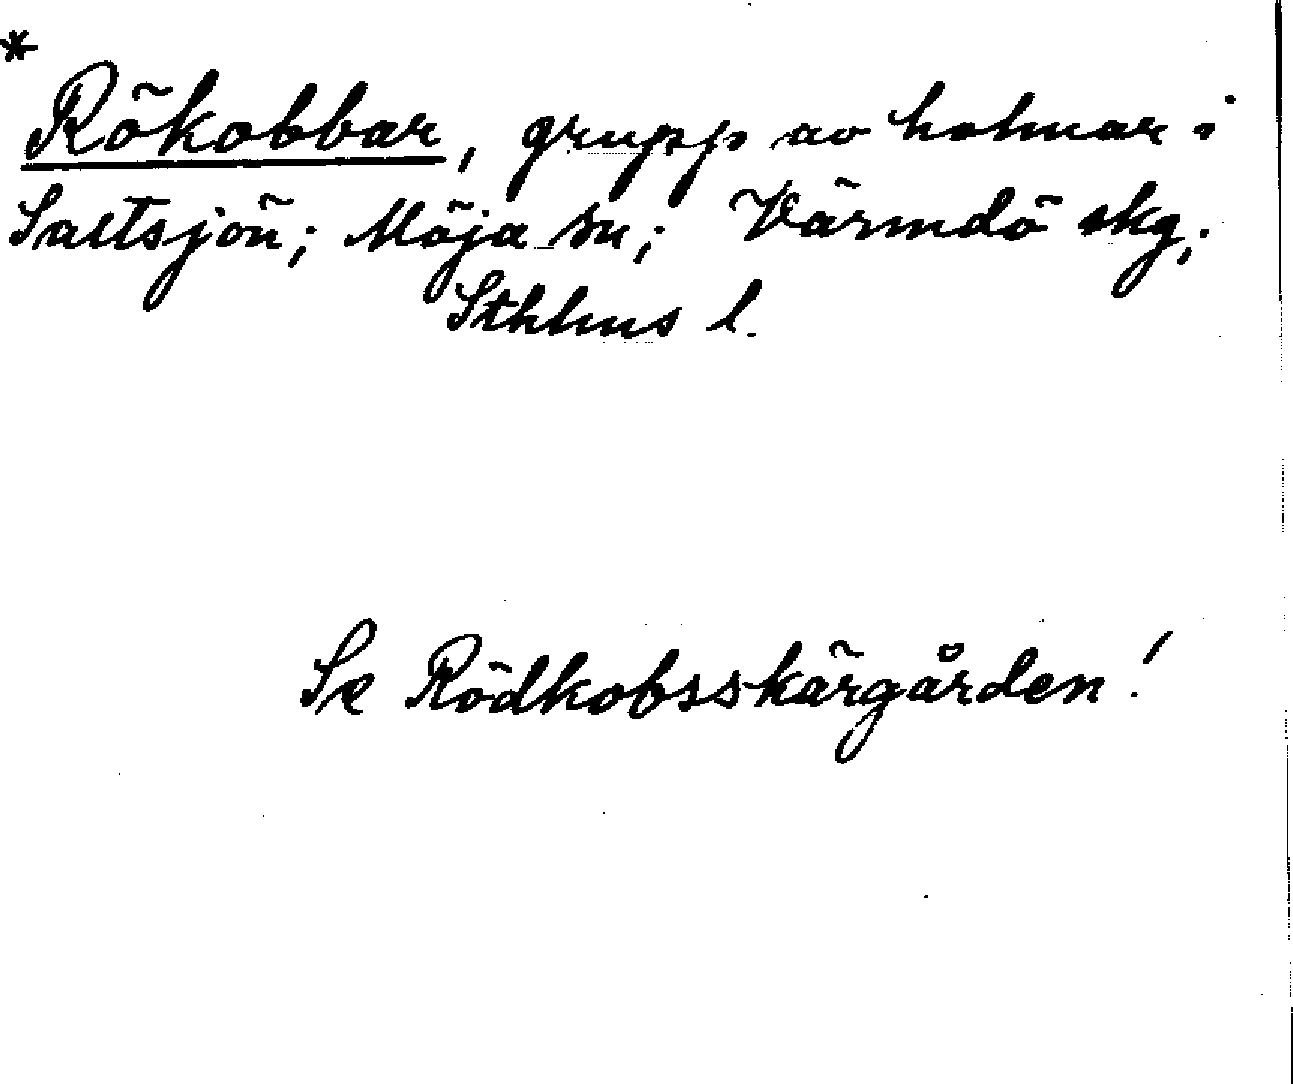 *
Rökobbar, grupp av holmar i
Saltsjön; Möja sn; Värmdö skg;
Sthlms l.
Se Rödkobsskärgården!